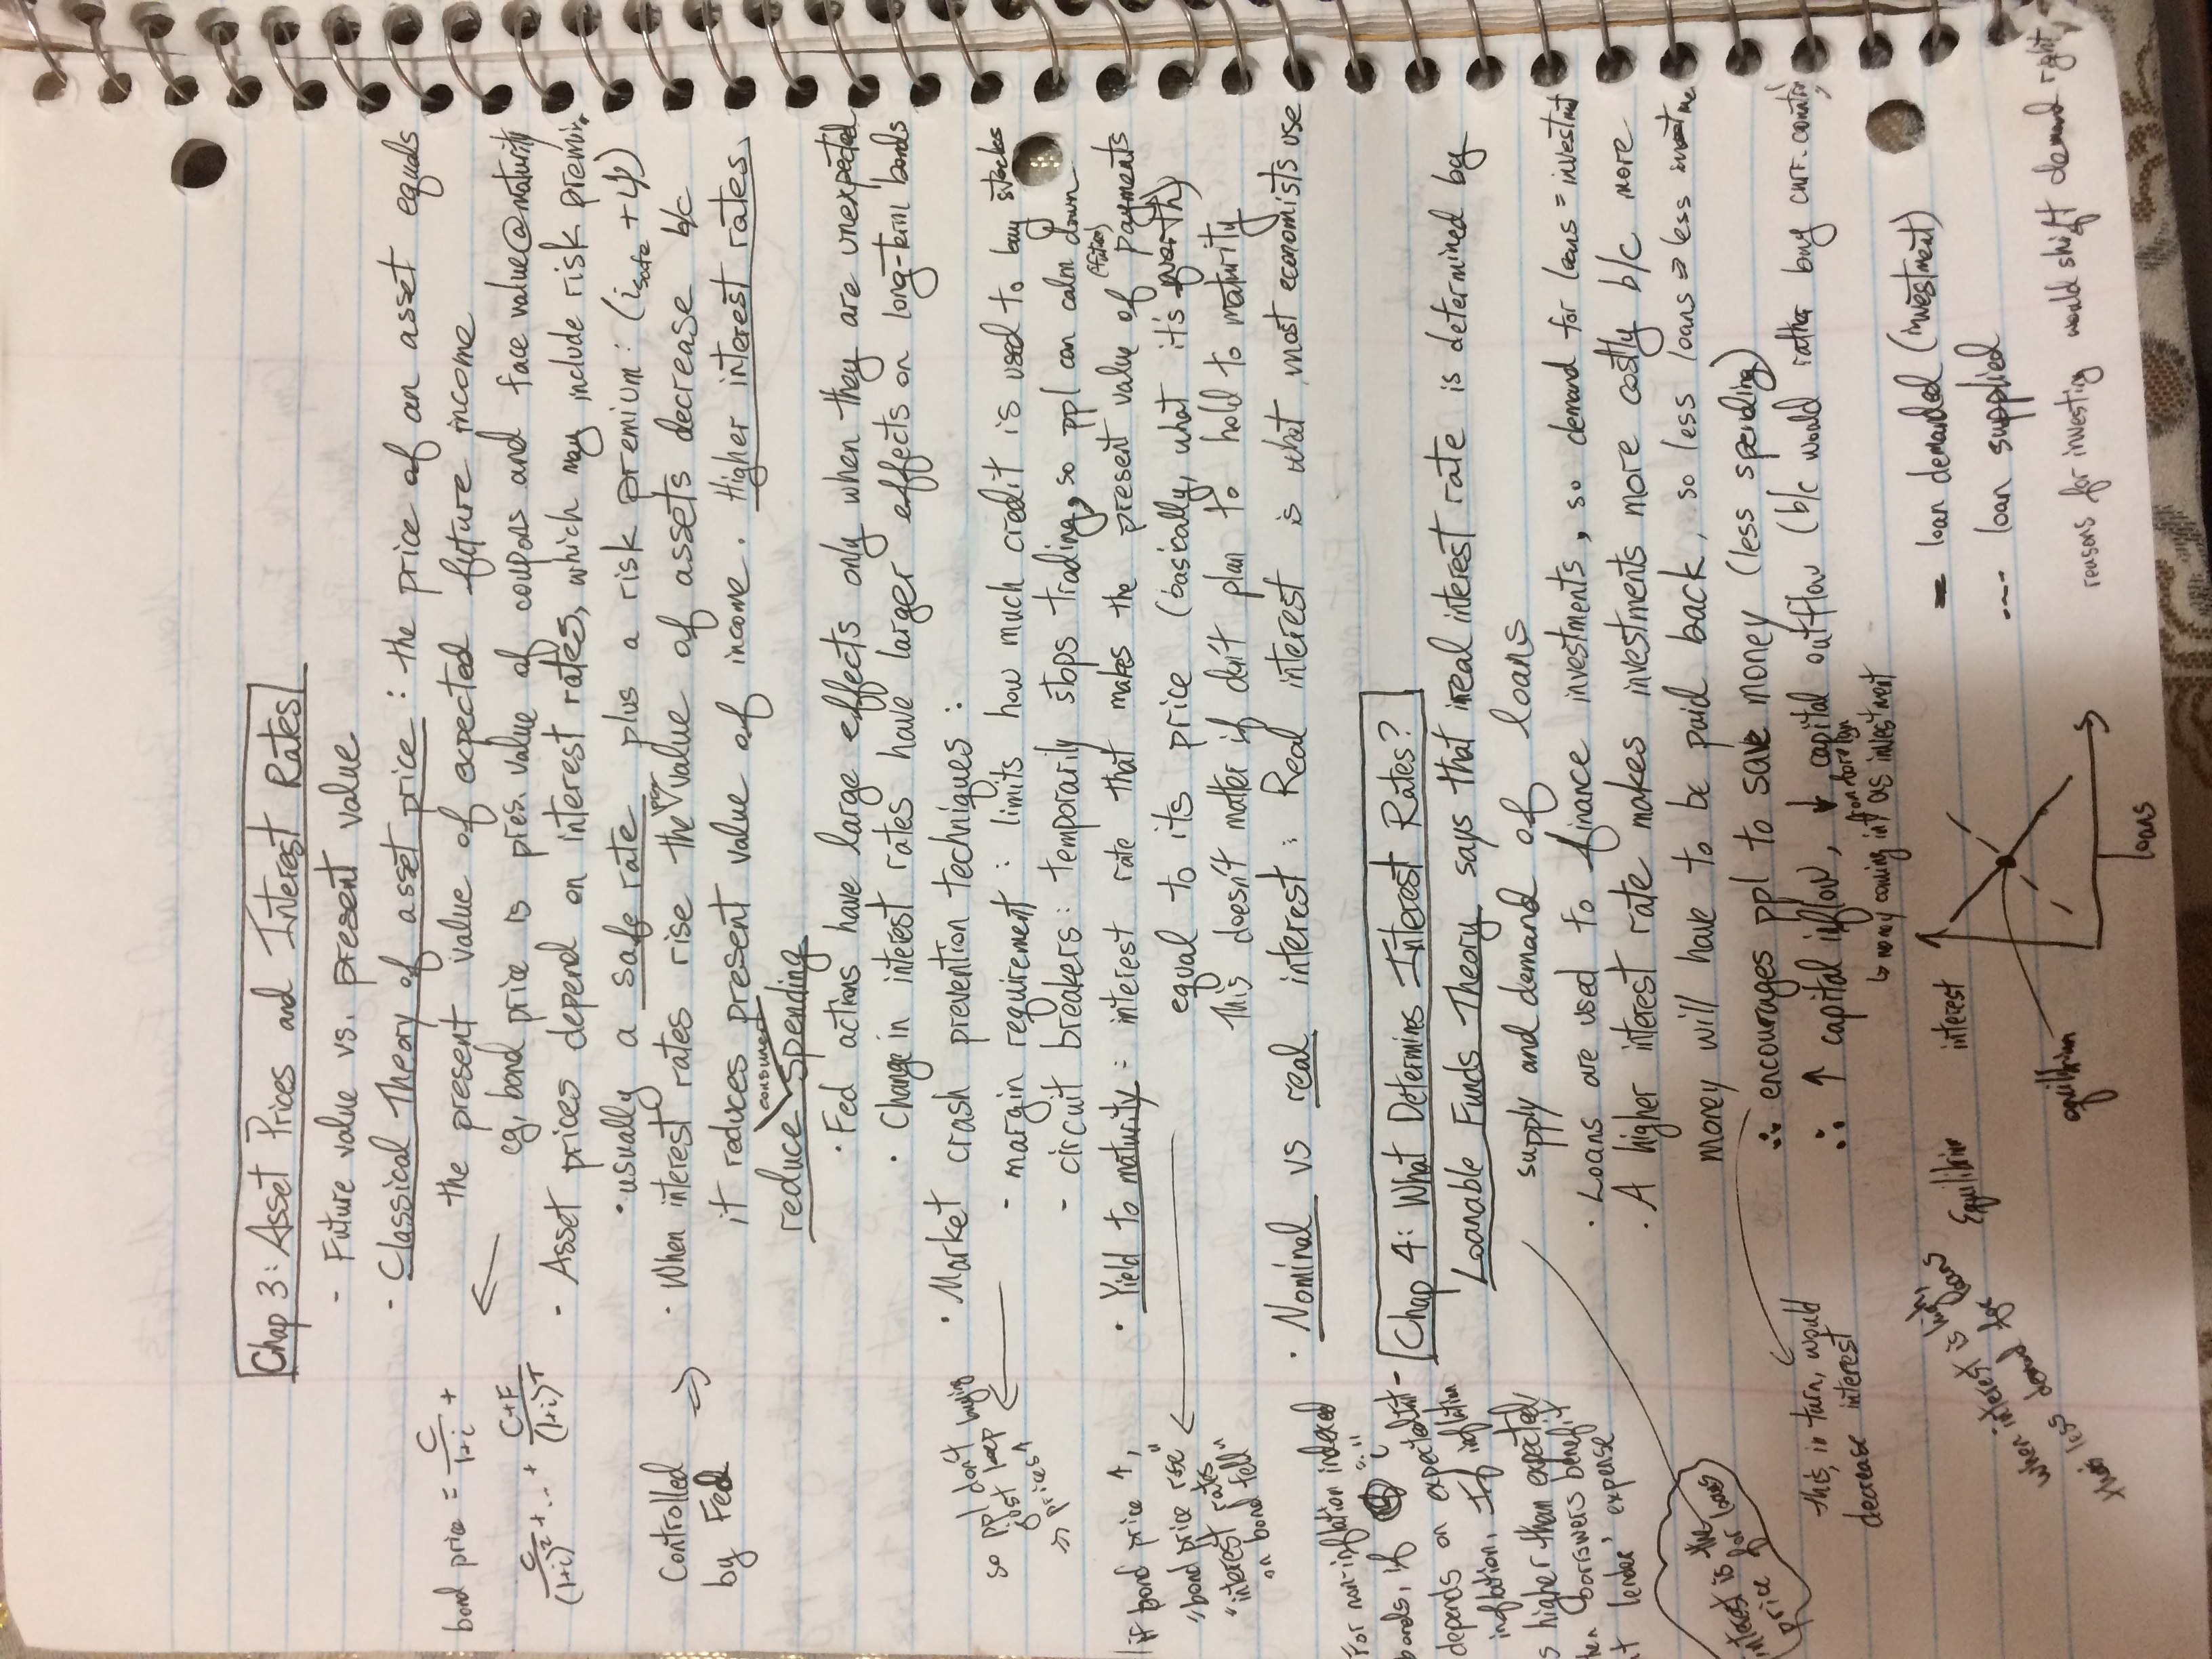 Chap 3: Asset Prices and Interest Rates
- Future value vs. present value
- Classical Theory of asset price : the price of an asset equals
the present value of expected future income
eg, bond price is pres. value of coupons and face value @ maturity
bond price = C/(1+i) +
C/(1+i)² + ... + (C+F)/(1+i)^T
- Asset prices depend on interest rates, which may include risk premiu
• usually a safe rate plus a risk premium: (i_safe + φ)
Controlled
by Fed ⇒
· When interest rates rise the value of assets decrease b/c
it reduces present value of income. Higher interest rates
reduce consumer spending
• Fed actions have large effects only when they are unexpected
• Change in interest rates have larger effects on long-term bonds
• Market crash prevention techniques :
- margin requirement : limits how much credit is used to buy stocks
so ppl don't
just keep buying
⇒ prices ↑
- circuit breakers : temporarily stops trading, so ppl can calm down
• Yield to maturity : interest rate that makes the present value of (future) payments
equal to its price (basically, what it's worth)
This doesn't matter if don't plan to hold to maturity
if bond price ↑,
"bond price rise"
"interest rates
on bond fell"
• Nominal vs real interest : Real interest is what most economists use
For non-inflation indexed
bonds, if "i"
depends on expected
inflation, If inflation
s higher than expected
hen borrowers benefit
t lender' expense
Chap 4: What Determines Interest Rates?
Loanable Funds Theory says that real interest rate is determined by
supply and demand of loans
interest is the
price for loans
• Loans are used to finance investments, so demand for loans = investmt
• A higher interest rate makes investments more costly b/c more
money will have to be paid back, so less loans ⇒ less
∴ encourages ppl to save money (less spending)
this, in turn, would
decrease interest
∴ ↑ capital inflow, ↓ capital outflow (b/c would rather buy curr. countr
↳ money coming in from foreign as investment
when interest is high,
there's less demand for loans
Equilibrium
interest
equilibrium
loans
— loan demanded (investment)
--- loan supplied
reasons for investing would shift demand right